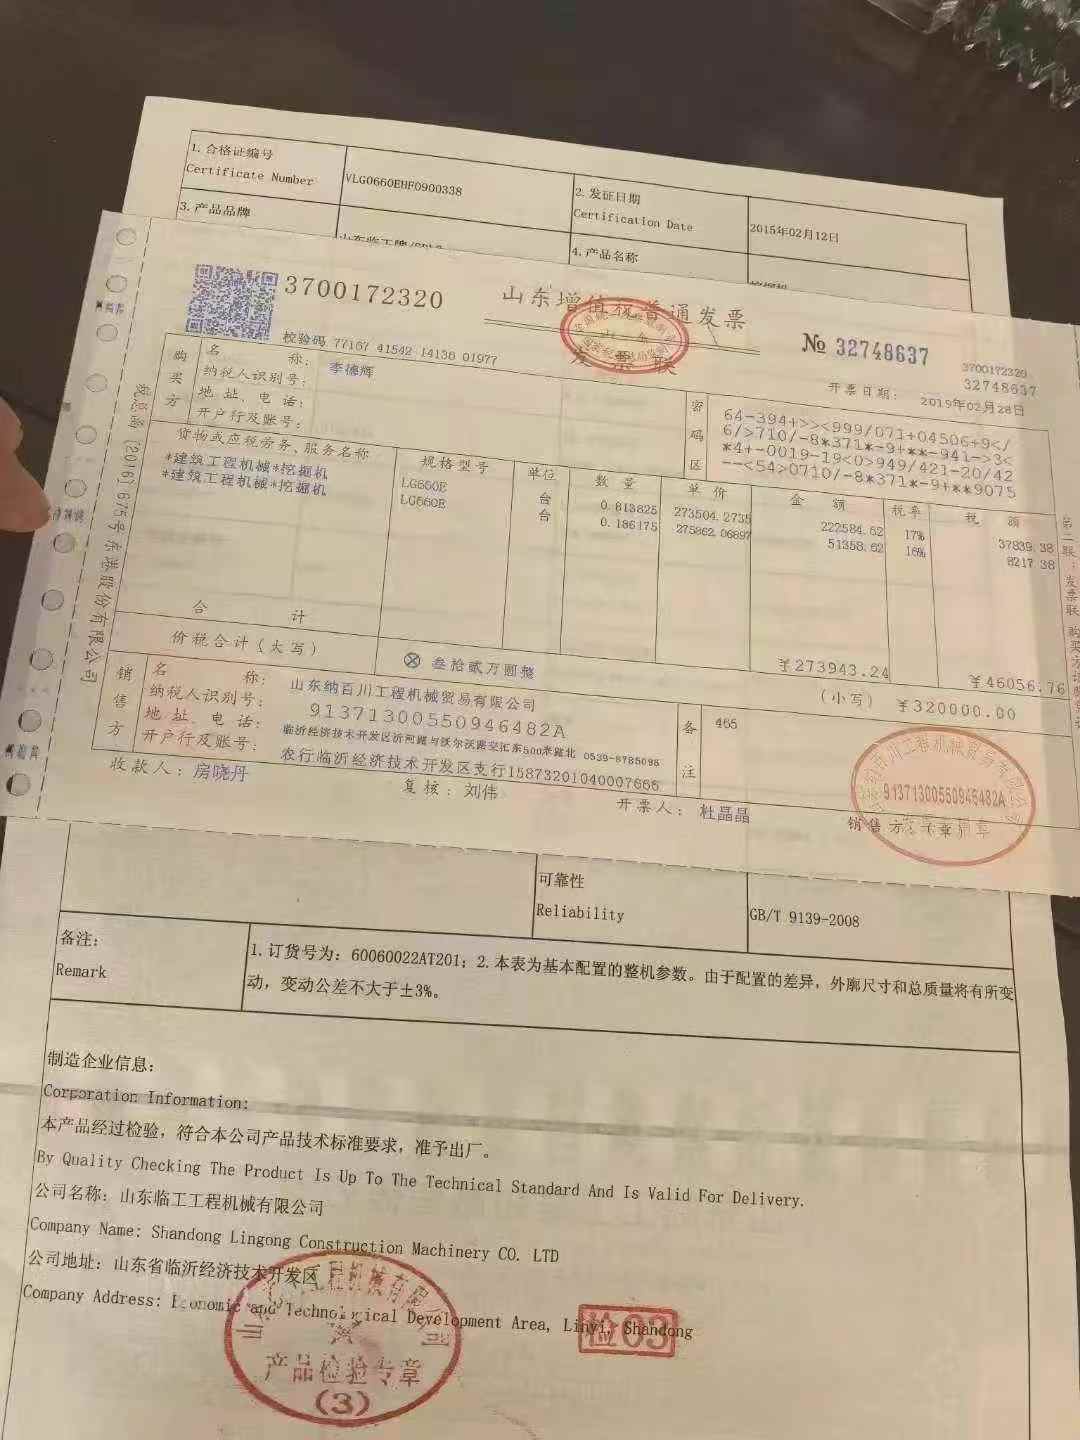 1. 合格证编号
Certificate Number
VLG0660EHF0900338
2. 发证日期
Certification Date
2015年02月12日
3. 产品品牌
4. 产品名称
3700172320
山东增值税普通发票
发票联
№ 32748637
3700172320
32748637
校验码 77167 41542 14138 01977
开票日期: 2019年02月28日
购买方
名称: 李德辉
纳税人识别号:
地址、电话:
开户行及账号:
密码区
64-394+>><999/071+04506+9</
6/>710/-8*371*-9+**-941->3<
*4+-0019-19<0>949/421-20/42
--<54>0710/-8*371*-9+**9075
货物或应税劳务、服务名称 规格型号 单位 数量 单价 金额 税率 税额
*建筑工程机械*挖掘机 LG660E 台 0.813825 273504.2735 222584.62 17% 37839.38
*建筑工程机械*挖掘机 LG660E 台 0.186175 275862.06897 51358.62 16% 8217.38
合计 ¥273943.24 ¥46056.76
价税合计(大写) ⊗ 叁拾贰万圆整 (小写) ¥320000.00
销售方
名称: 山东纳百川工程机械贸易有限公司
纳税人识别号: 91371300550946482A
地址、电话: 临沂经济技术开发区沂河路与沃尔沃路交汇东500米路北 0539-8785098
开户行及账号: 农行临沂经济技术开发区支行15873201040007666
备注
465
收款人: 房晓丹
复核: 刘伟
开票人: 杜晶晶
销售方:(章)
91371300550946482A
税总函〔2016〕675号东港股份有限公司
第二联:发票联
可靠性
Reliability
GB/T 9139-2008
备注:
Remark
1. 订货号为: 60060022AT201; 2. 本表为基本配置的整机参数。由于配置的差异, 外廓尺寸和总质量将有所变
动, 变动公差不大于±3%。
制造企业信息:
Corporation Information:
本产品经过检验, 符合本公司产品技术标准要求, 准予出厂。
By Quality Checking The Product Is Up To The Technical Standard And Is Valid For Delivery.
公司名称: 山东临工工程机械有限公司
Company Name: Shandong Lingong Construction Machinery CO. LTD
公司地址: 山东省临沂经济技术开发区
Company Address: Economic and Technological Development Area, Linyi, Shandong
产品检验专章
(3)
检03